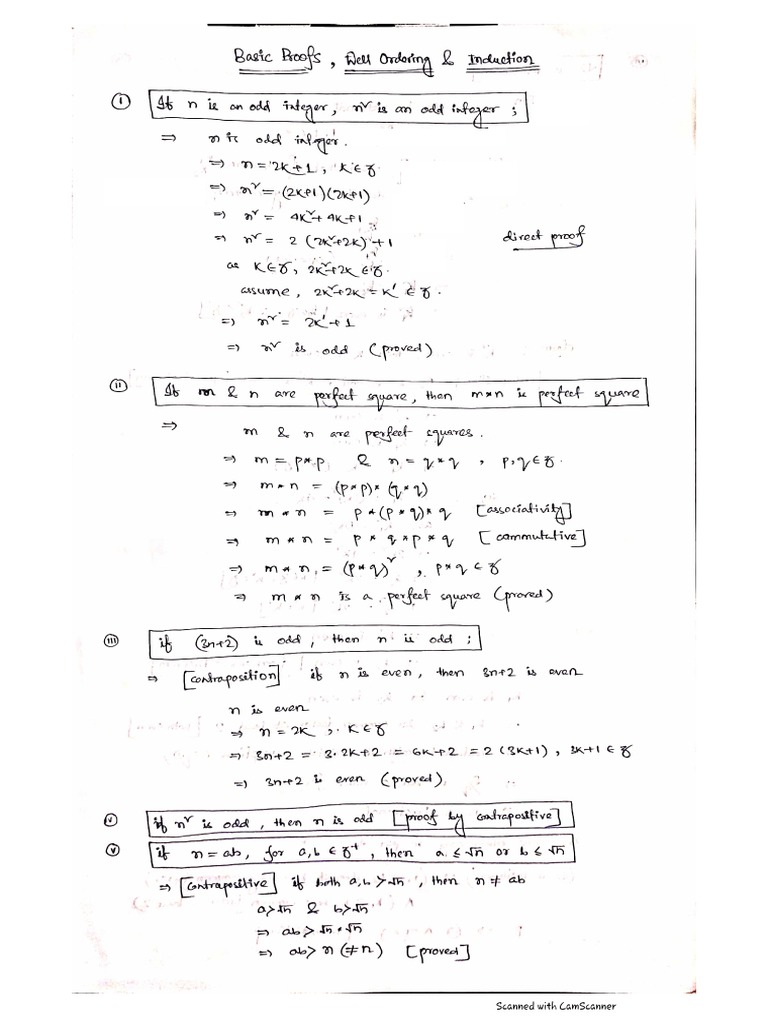 Basic Proofs, Well Ordering & Induction
(i) If n is an odd integer, n² is an odd integer;
⇒ n is odd integer.
⇒ n = 2k+1, k ∈ Z
⇒ n² = (2k+1)(2k+1)
⇒ n² = 4k²+4k+1
⇒ n² = 2(2k²+2k)+1 direct proof
as k ∈ Z, 2k²+2k ∈ Z.
assume, 2k²+2k = k' ∈ Z.
⇒ n² = 2k'+1
⇒ n² is odd (proved)
(ii) If m & n are perfect square, then m*n is perfect square
⇒ m & n are perfect squares.
⇒ m = p*p & n = q*q, p,q ∈ Z.
⇒ m*n = (p*p)*(q*q)
⇒ m*n = p*(p*q)*q [associativity]
⇒ m*n = p*q*p*q [commutative]
⇒ m*n = (p*q)², p*q ∈ Z
⇒ m*n is a perfect square (proved)
(iii) if (3n+2) is odd, then n is odd;
⇒ [contraposition] if n is even, then 3n+2 is even
n is even
⇒ n = 2k, k ∈ Z
⇒ 3n+2 = 3·2k+2 = 6k+2 = 2(3k+1), 3k+1 ∈ Z
⇒ 3n+2 is even (proved)
(v) if n² is odd, then n is odd [proof by contrapositive]
(v) if n = ab, for a,b ∈ Z⁺, then a ≤ √n or b ≤ √n
⇒ [contrapositive] if both a,b > √n, then n ≠ ab
a > √n & b > √n
⇒ ab > √n * √n
⇒ ab > n (≠ n) [proved]
Scanned with CamScanner